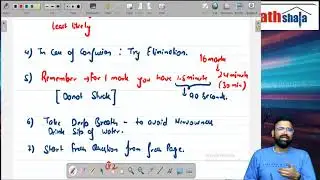 athshala
Least likely
4) In Case of Confusion : Try Elimination.
16 marks
5) Remember → for 1 mark you have 1.5 minute 24 minute
(30 min)
[Donot Stuck] → 90 seconds.
6) Take Deep Breath - to avoid Nervousness
Drink Sip of Water.
7) Start Fresh Question from fresh Page.